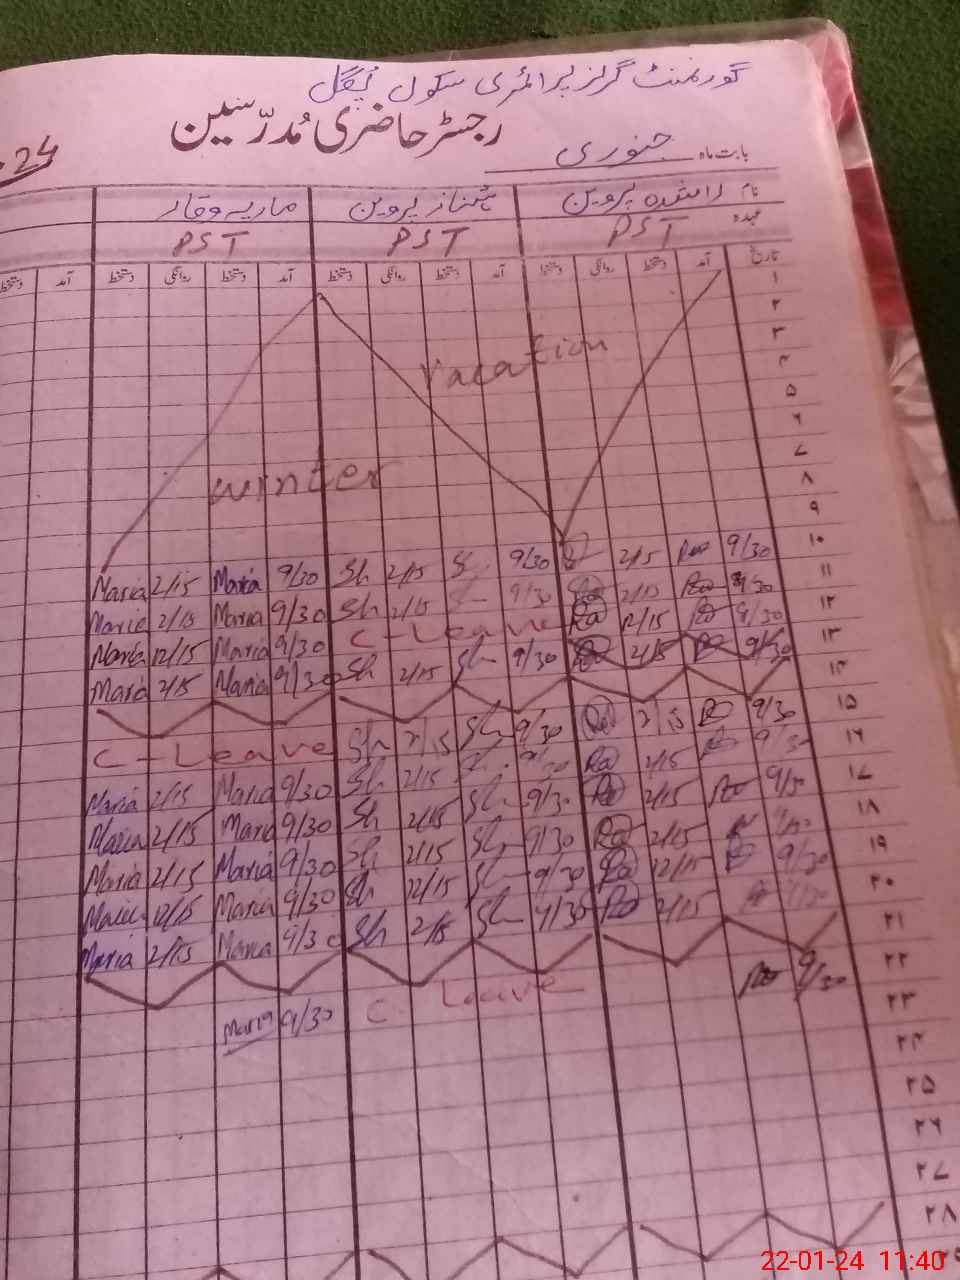 گورنمنٹ گرلز پرائمری سکول
رجسٹر حاضری مُدرّسین
24
بابت ماہ جنوری
نام راشدہ پروین شہناز پروین ماریہ وقار
عہدہ PST PST PST
تاریخ آمد دستخط روانگی دستخط آمد دستخط روانگی دستخط آمد دستخط روانگی دستخط آمد دستخط
۱
۲
۳
۴
Vacation
۵
۶
۷
winter
۸
۹
۱۰
Maria 2/15 Maria 9/30 Sh 2/15 S 9/30 2/15 9/30
۱۱
Maria 2/15 Maria 9/30 Sh 2/15 9/30 Ra 2/15 Ra 9/30
۱۲
Maria 12/15 Maria 9/30 C-Leave Ra 12/15 Ra 9/30
۱۳
Maria 2/15 Maria 9/30 Sh 2/15 Sh 9/30 2/15 9/30
۱۴
۱۵
C-Leave Sh 2/15 Sh 9/30 Ra 2/15 Ra 9/30
۱۶
Maria 2/15 Maria 9/30 Sh 2/15 Sh 9/30 Ra 2/15 9/30
۱۷
Maria 2/15 Maria 9/30 Sh 2/15 Sh 9/30 Ra 2/15 Ra 9/30
۱۸
Maria 2/15 Maria 9/30 Sh 2/15 Sh 9/30 Ra 2/15 9/30
۱۹
Maria 12/15 Maria 9/30 Sh 12/15 Sh 9/30 Ra 12/15 9/30
۲۰
Maria 2/15 Maria 9/30 Sh 2/15 Sh 9/30 Ra 2/15 9/30
۲۱
۲۲
Maria 9/30 C. Leave Ra 9/30
۲۳
۲۴
۲۵
۲۶
۲۷
۲۸
22-01-24 11:40